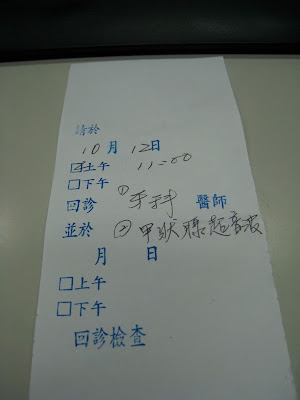 請於
10月12日
☑上午 11:00
□下午
回診 ① 牙科 醫師
並於 ② 甲狀腺超音波
月 日
□上午
□下午
回診檢查